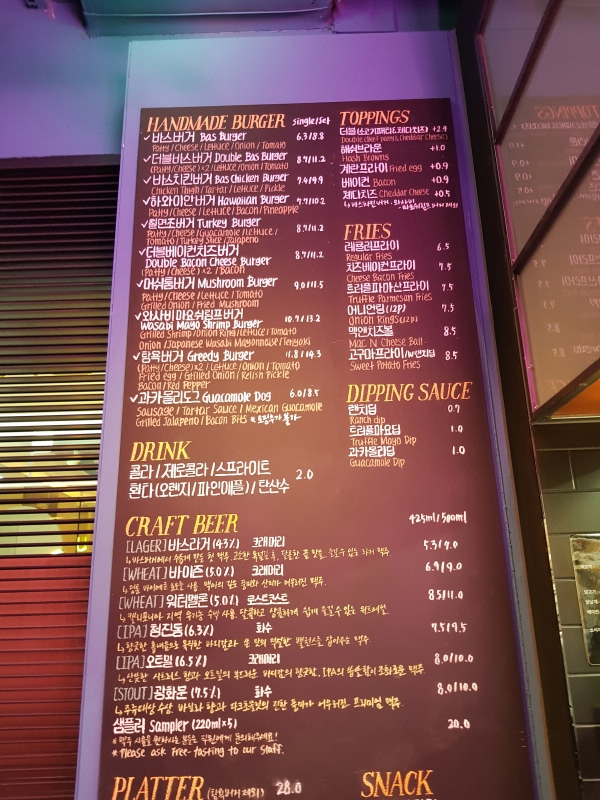 HANDMADE BURGER single/set
✓바스버거 Bas Burger 6.3/8.8
Patty/Cheese/Lettuce/Onion/Tomato
✓더블바스버거 Double Bas Burger 8.7/11.2
(Patty/Cheese)×2/Lettuce/Onion/Tomato
✓바스치킨버거 Bas Chicken Burger 7.4/9.9
Chicken Thigh/Tartar/Lettuce/Pickle
✓하와이안버거 Hawaiian Burger 7.7/10.2
Patty/Cheese/Lettuce/Bacon/Pineapple
✓칠면조버거 Turkey Burger 8.7/11.2
Patty/Cheese/Guacamole/Lettuce/
Tomato/Turkey Slice/Jalapeno
✓더블베이컨치즈버거
Double Bacon Cheese Burger 8.7/11.2
(Patty/Cheese)×2/Bacon
✓머쉬룸버거 Mushroom Burger 9.0/11.5
Patty/Cheese/Lettuce/Tomato
Grilled Onion/Fried Mushroom
✓와사비마요쉬림프버거
Wasabi Mayo Shrimp Burger 10.7/13.2
Grilled Shrimp/Onion Ring/Lettuce/Tomato
Onion/Japanese Wasabi Mayonnaise/Teriyaki
✓탐욕버거 Greedy Burger 11.8/14.3
(Patty/Cheese)×2/Lettuce/Onion/Tomato
Fried egg/Grilled Onion/Relish Pickle
Bacon/Red Pepper
✓과카몰리도그 Guacamole Dog 6.0/8.5
Sausage/Tartar Sauce/Mexican Guacamole
Grilled Jalapeno/Bacon Bits
TOPPINGS
더블(소고기패티&체다치즈) +2.9
Double(Beef patty&Cheddar Cheese)
해쉬브라운 +1.0
Hash Browns
계란프라이 Fried egg +0.9
베이컨 Bacon +0.9
체다치즈 Cheddar Cheese +0.5
FRIES
레귤러프라이 6.5
Regular Fries
치즈베이컨프라이 7.5
Cheese Bacon Fries
트러플파마산프라이 7.5
Truffle Parmesan Fries
어니언링(12P) 7.5
Onion Rings(12P)
맥앤치즈볼 8.5
Mac N Cheese Ball
고구마프라이(w/랜치딥) 8.5
Sweet Potato Fries
DIPPING SAUCE
랜치딥 0.7
Ranch dip
트러플마요딥 1.0
Truffle Mayo Dip
과카몰리딥 1.0
Guacamole Dip
DRINK
콜라/제로콜라/스프라이트
환타(오렌지/파인애플)/탄산수 2.0
CRAFT BEER 425ml/500ml
[LAGER] 바스라거(4.3%) 크래머리 5.3/7.0
[WHEAT] 바이젠(5.0%) 크래머리 6.9/9.0
[WHEAT] 워터멜론(5.0%) 로스트코스트 8.5/11.0
[IPA] 청진동(6.3%) 화수 7.5/9.5
[IPA] 오트밀(6.5%) 크래머리 8.0/10.0
[STOUT] 광화문(7.5%) 화수 8.0/10.0
샘플러 Sampler (220ml×5) 20.0
*맥주 시음을 원하시는 분은 직원에게 문의해주세요!
*Please ask Free-tasting to our staff.
PLATTER (탐욕버거 제외) 28.0
SNACK